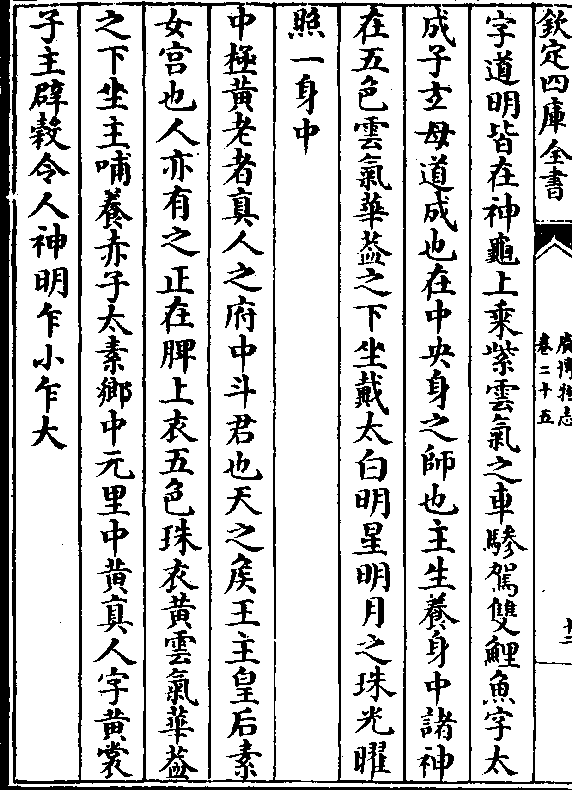 欽定四庫全書
廣博物志
卷二十五
十二
字道明皆在神龜上乘紫雲氣之車驂駕雙鯉魚字太
成子玄母道成也在中央身之師也主生養身中諸神
在五色雲氣華葢之下坐戴太白明星明月之珠光曜
照一身中
中極黃老者真人之府中斗君也天之矦王主皇后素
女宮也人亦有之正在脾上衣五色珠衣黃雲氣華葢
之下坐主哺養赤子太素鄉中元里中黃真人字黃裳
子主辟穀令人神明乍小乍大